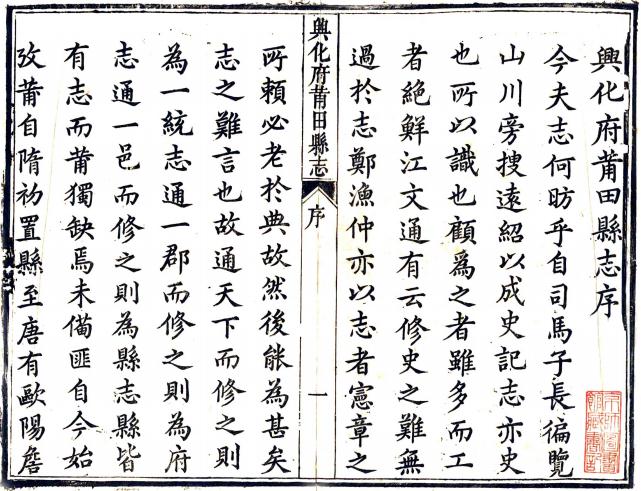 興化府莆田縣志序
今夫志何昉乎自司馬子長徧覽
山川旁搜遠紹以成史記志亦史
也所以識也顧爲之者雖多而工
者絕鮮江文通有云修史之難無
過於志鄭漁仲亦以志者憲章之
興化府莆田縣志
序
一
所賴必老於典故然後能為甚矣
志之難言也故通天下而修之則
為一統志通一郡而修之則為府
志通一邑而修之則為縣志縣皆
有志而莆獨缺焉未備匪自今始
攷莆自隋初置縣至唐有歐陽詹